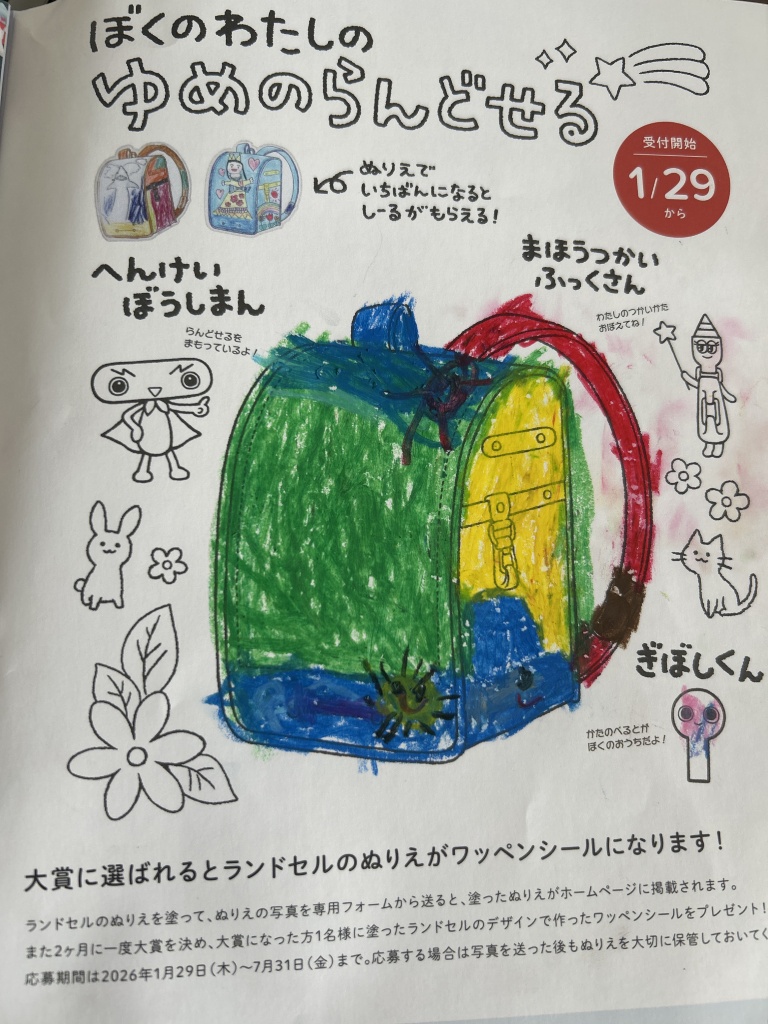 ぼくのわたしの
ゆめのらんどせる
受付開始
1/29
から
ぬりえで
いちばんになると
しーるがもらえる!
へんけい
ぼうしまん
らんどせるを
まもっているよ!
まほうつかい
ふっくさん
わたしのつかいかた
おぼえてね!
ぎぼしくん
かたのべるとが
ぼくのおうちだよ!
大賞に選ばれるとランドセルのぬりえがワッペンシールになります!
ランドセルのぬりえを塗って、ぬりえの写真を専用フォームから送ると、塗ったぬりえがホームページに掲載されます。
また2ヶ月に一度大賞を決め、大賞になった方1名様に塗ったランドセルのデザインで作ったワッペンシールをプレゼント!
応募期間は2026年1月29日(木)~7月31日(金)まで。応募する場合は写真を送った後もぬりえを大切に保管しておいてく